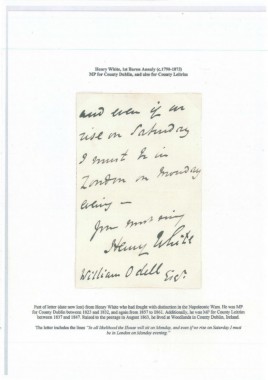 Henry White, 1st Baron Annaly (c.1790-1873)
MP for County Dublin, and also for County Leitrim
and even if we
rise on Saturday
I must be in
London on Monday
evening —
Yrs most sincy
Henry White
William Odell Esqr.
Part of letter (date now lost) from Henry White who had fought with distinction in the Napoleonic Wars. He was MP
for County Dublin between 1823 and 1832, and again from 1837 to 1861. Additionally, he was MP for County Leitrim
between 1837 and 1847. Raised to the peerage in August 1863, he lived at Woodlands in County Dublin, Ireland.
The letter includes the lines: "In all likelihood the House will sit on Monday, and even if we rise on Saturday I must
be in London on Monday evening."